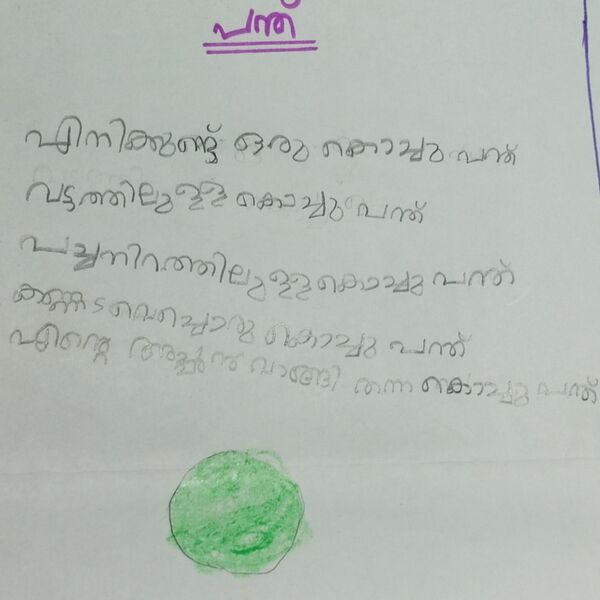 പന്ത്
എനിക്കുണ്ട് ഒരു കൊച്ചു പന്ത്
വട്ടത്തിലുള്ള കൊച്ചു പന്ത്
പച്ചനിറത്തിലുള്ള കൊച്ചു പന്ത്
കണ്ണട വെച്ചൊരു കൊച്ചു പന്ത്
എന്റെ അച്ഛൻ വാങ്ങി തന്ന കൊച്ചു പന്ത്